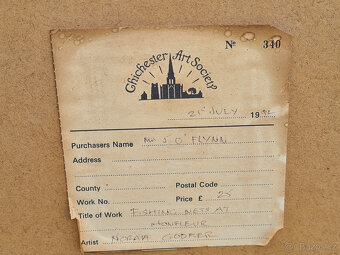 Chichester Art Society
No 340
21st JULY 19
Purchasers Name Mr J O'FLYNN
Address
County
Postal Code
Work No.
Price £ 25
Title of Work FISHING NETS AT
HONFLEUR
Artist NORAH